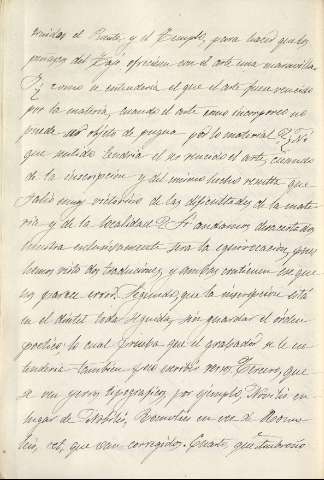 unidas el Puente y el Templo, para hacer que los
pasages del Tajo ofrecieren con el arte una maravilla.
¿Y como se entenderia el que el arte fuera vencido
por la materia, cuando el arte como incorporeo no
puede ser objeto de pugna por lo material? ¿No
que sentido tendria el no vencido el arte, cuando
de la inscripcion y del mismo hecho resulta que
salió muy victorioso de las dificultades de la mate
ria y de la localidad? Si andamos desacertados
nuestra esclusivamente sera la equivocacion, pues
hemos visto dos traducciones, y ambas contienen lo que
nos parece error. Segundo, que la inscripcion está
en el dintel toda seguida, sin guardar el órden
poetico; lo cual prueba que el grabador ni lo en
tenderia tambien y no escribió versos. Tercero, que
se ven yerros tipograficos, por ejemplo, Novilis en
lugar de Nobilis, Romolius en vez de Romu
leis, etc, que van corregidos. Cuarto, que